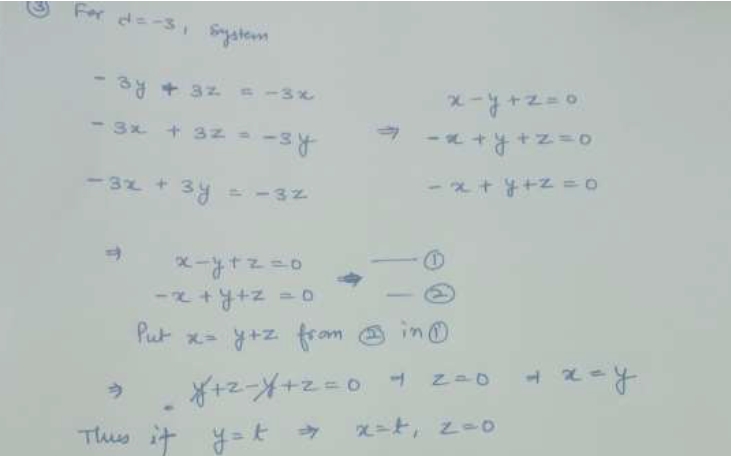 ③ For d=-3, system
-3y + 3z = -3x
-3x + 3z = -3y
-3x + 3y = -3z
⇒ x-y+z=0
-x+y+z=0
-x+y+z=0
⇒ x-y+z=0 — ①
-x+y+z=0 — ②
Put x= y+z from ② in ①
⇒ y+z-y+z=0 ⇒ z=0 ⇒ x=y
Thus if y=t ⇒ x=t, z=0